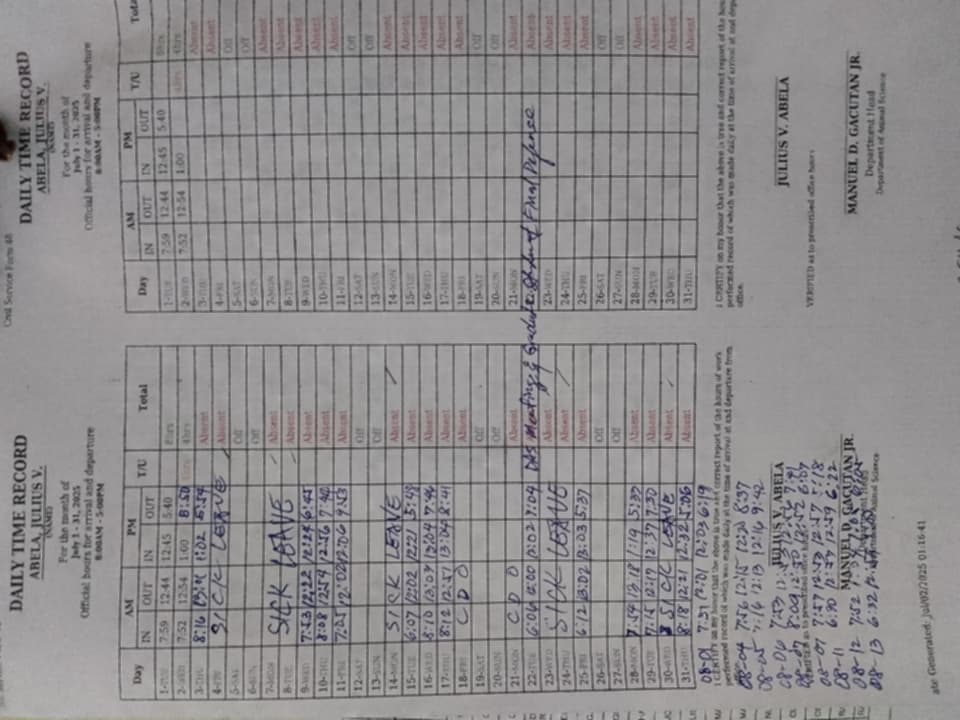 Civil Service Form 48
DAILY TIME RECORD
ABELA, JULIUS V.
(NAME)
For the month of
July 1 - 31, 2025
Official hours for arrival and departure
8:00AM - 5:00PM
Day AM PM T/U Total
IN OUT IN OUT
1-TUE 7:59 12:44 12:45 5:40 8hrs
2-WED 7:52 12:54 1:00 8:50 4hrs
3-THU 8:16 1:02 5:54 Absent
4-FRI SICK LEAVE Absent
5-SAT Off
6-SUN Off
7-MON SICK LEAVE Absent
8-TUE Absent
9-WED 7:53 12:22 12:24 6:45 Absent
10-THU 8:08 12:54 12:56 7:40 Absent
11-FRI 7:25 12:02 12:06 9:53 Absent
12-SAT Off
13-SUN Off
14-MON SICK LEAVE Absent
15-TUE 6:07 12:02 12:21 5:49 Absent
16-WED 8:10 12:03 12:04 7:46 Absent
17-THU 8:12 12:57 13:04 8:41 Absent
18-FRI CDO Absent
19-SAT Off
20-SUN Off
21-MON CDO Absent
22-TUE 6:06 12:00 12:02 7:04 Absent DAS Meeting & Graduate Student Final Defense
23-WED SICK LEAVE Absent
24-THU Absent
25-FRI 6:12 13:02 13:03 5:37 Absent
26-SAT Off
27-SUN Off
28-MON 7:54 12:18 1:19 5:37 Absent
29-TUE 7:15 12:17 12:37 7:30 Absent
30-WED SICK LEAVE Absent
31-THU 8:18 12:21 12:32 5:06 Absent
08-01 7:31 12:01 12:03 6:19
I CERTIFY on my honor that the above is true and correct report of the hours of work
performed record of which was made daily at the time of arrival at and departure from
08-04 7:56 12:15 12:20 8:37
08-05 7:16 12:13 12:16 9:42
JULIUS V. ABELA
08-06 7:59
08-07 8:09
08-07 7:57 12:53 12:57 5:18
08-11 6:30 12:57 12:59 6:22
MANUEL D. GACUTAN JR.
08-12 7:52
08-13 6:32
Animal Science
ate Generated: Jul/02/2025 01:16:41
DAILY TIME RECORD
ABELA, JULIUS V.
(NAME)
For the month of
July 1 - 31, 2025
Official hours for arrival and departure
8:00AM - 5:00PM
Day AM PM T/U Tota
IN OUT IN OUT
1-TUE 7:59 12:44 12:45 5:40 8hrs
2-WED 7:52 12:54 1:00 4hrs 4hrs
3-THU Absent
4-FRI Absent
5-SAT Off
6-SUN Off
7-MON Absent
8-TUE Absent
9-WED Absent
10-THU Absent
11-FRI Absent
12-SAT Off
13-SUN Off
14-MON Absent
15-TUE Absent
16-WED Absent
17-THU Absent
18-FRI Absent
19-SAT Off
20-SUN Off
21-MON Absent
22-TUE Absent
23-WED Absent
24-THU Absent
25-FRI Absent
26-SAT Off
27-SUN Off
28-MON Absent
29-TUE Absent
30-WED Absent
31-THU Absent
I CERTIFY on my honor that the above is true and correct report of the hou
performed record of which was made daily at the time of arrival at and dep
office.
JULIUS V. ABELA
VERIFIED as to prescribed office hours
MANUEL D. GACUTAN JR.
Department Head
Department of Animal Science